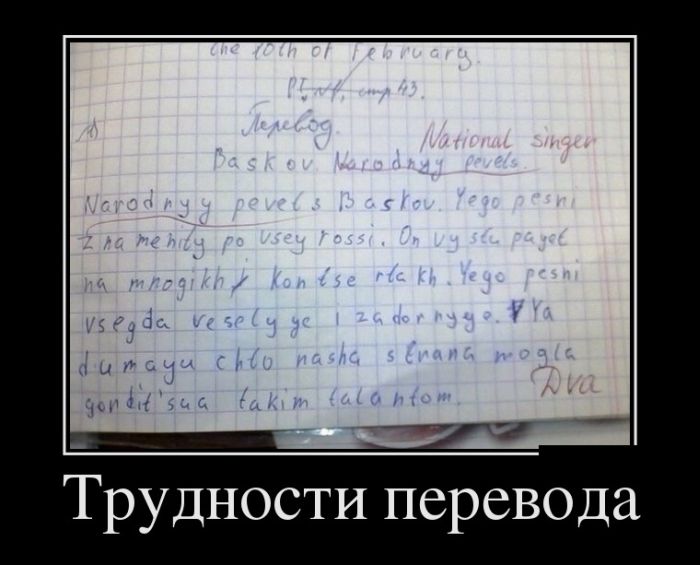 the 10th of February.
стр 43.
1)
Перевод.
National singer
Baskov. Narodnyy pevets.
Narodnyy pevets Baskov. Yego pesni
znamenity po vsey rossi. On vystupayet
na mnogikh kontsertakh. Yego pesni
vsegda veselyye i zadornyye. Ya
dumayu chto nasha strana mogla
gordit'sua takim talantom.
Dva
Трудности перевода